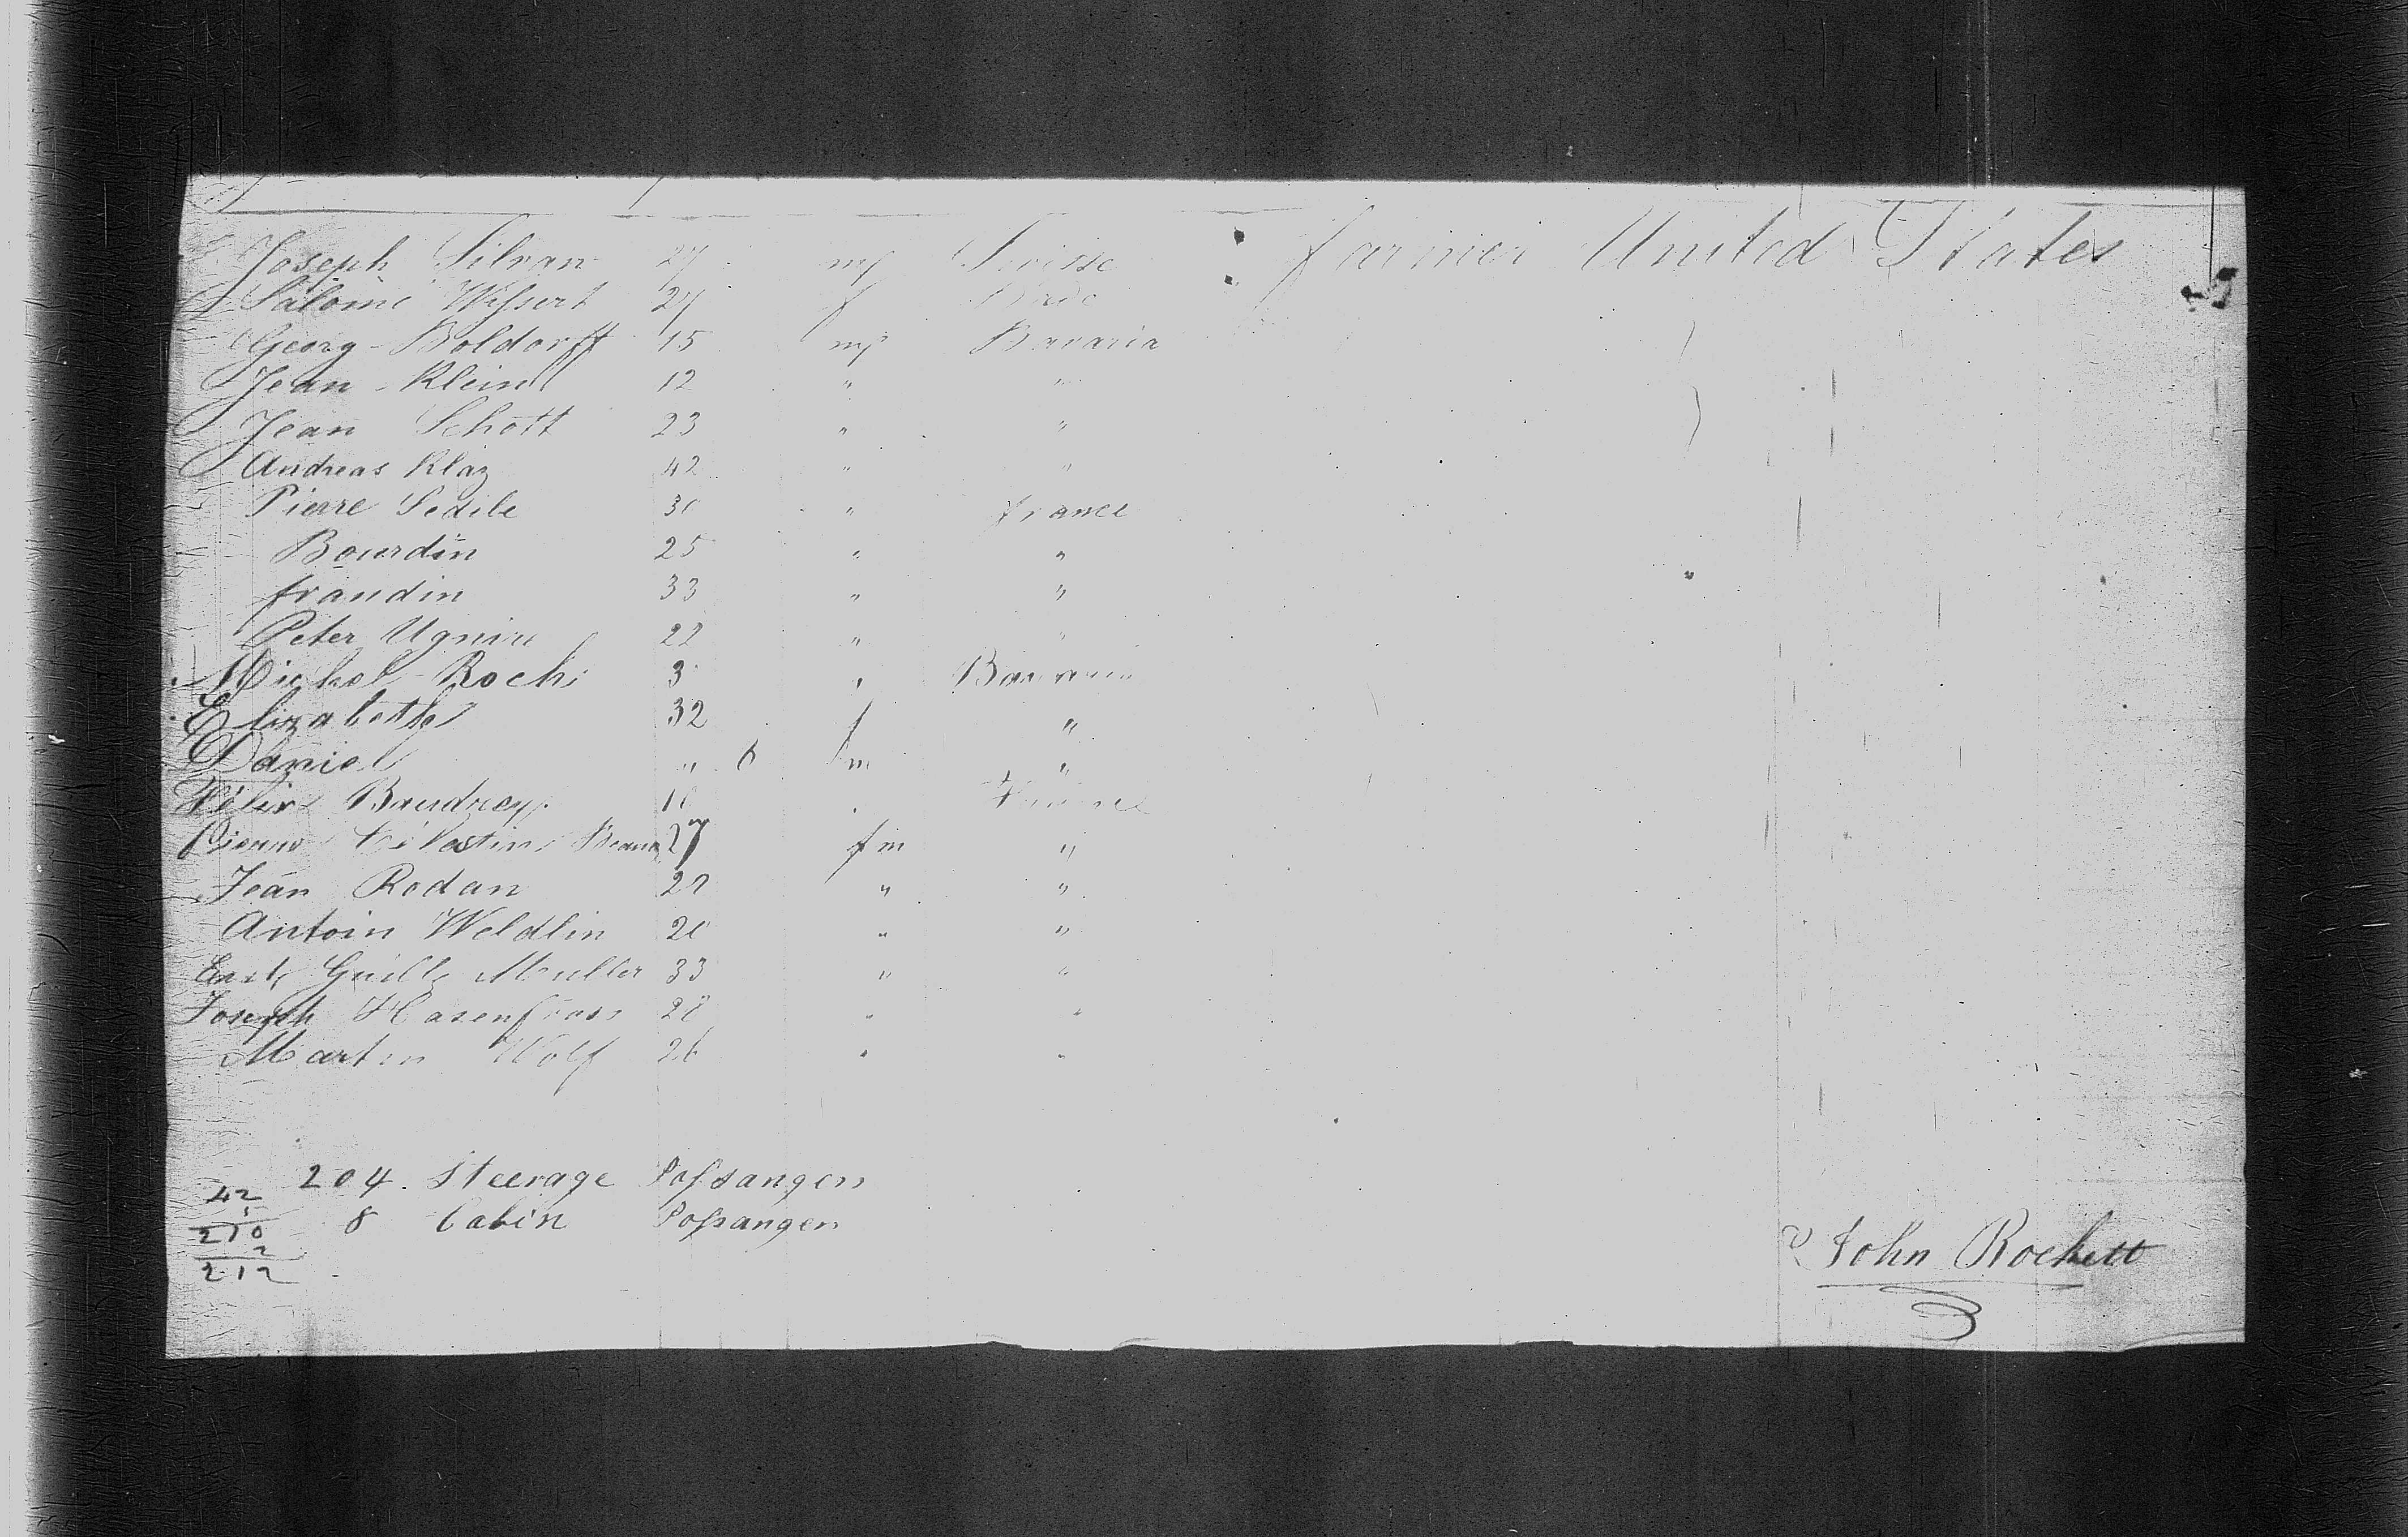 Joseph Silvan 27 m Suisse farmer United States
Salomé Wissert 27 f Bade
Georg Boldorff 15 m Bavaria
Jean Klein 12 " "
Jean Schott 23 " "
Andreas Klaz 42 " "
Pierre Sedile 30 " france
Bourdin 25 " "
fraudin 33 " "
Peter 22 " "
Michel Roch 3 " Bavaria
Elizabeth 32 f "
Daniel " 6 m "
Félix Baudrey France
Pierre Célestin 27 m "
Jean Rodan 27 " "
Antoin Weldlin 20 " "
Guille Muller 33 " "
Joseph Hasenfrass 28 " "
Martin Wolf 26 " "
204. Steerage Passangers
42
8 Cabin Passangers
210
2
212
John Rockett